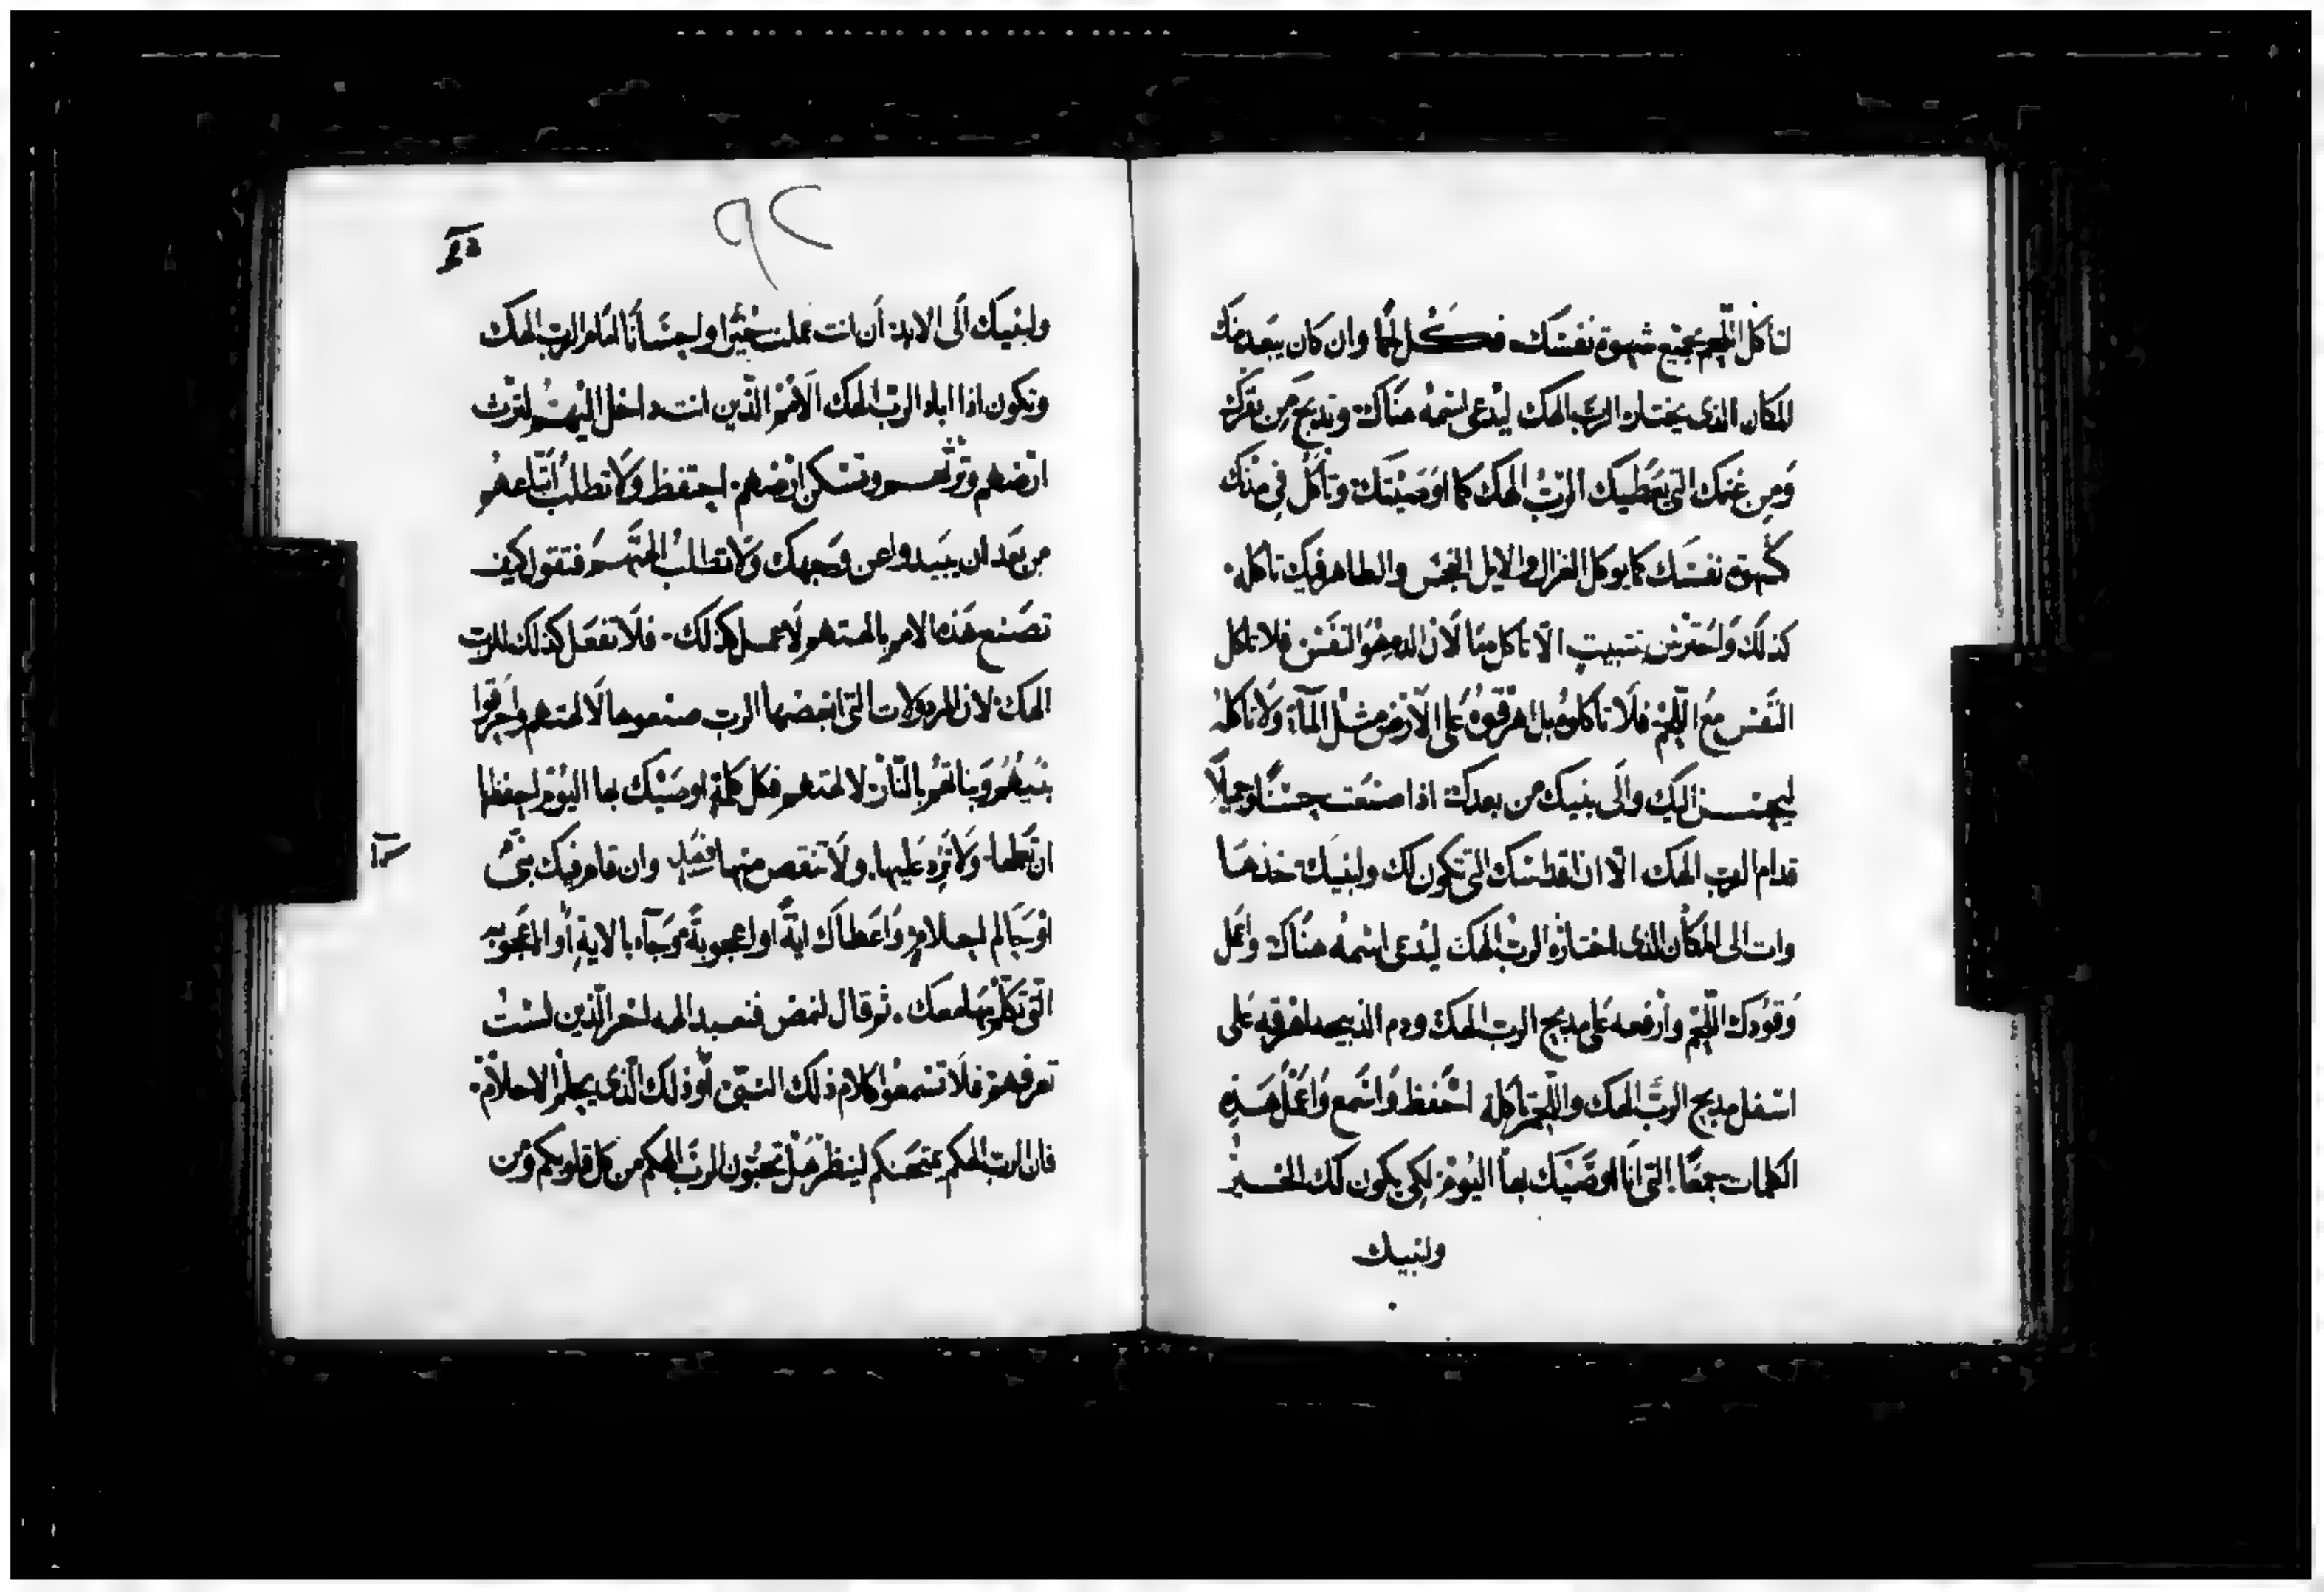 لتاكل اللحم بجميع شهوة نفسك فكل لحما وان كان يبعد منك
المكان الذى يختاره الرب الهك ليدعى اسمه هناك وتذبح من بقرك
ومن غنمك التى يعطيك الرب الهك كما اوصيتك وتاكل في مدنك
كشهوة نفسك كما يوكل الغزال والايل النجس والطاهر فيك تاكله.
كذلك ولتحترس بتثبيت الا تاكل دما لان الدم هو النفس فلا تاكل
النفس مع اللحم فلا تاكلوه بل اهرقوه على الارض مثل الماء ولا تاكله
ليحسن اليك والى بنيك من بعدك اذا صنعت حسنا وجميلا
قدام الرب الهك الا ان اقداسك التى تكون لك ولبنيك خذها
وات الى المكان الذى اختاره الرب الهك ليدعى اسمه هناك واعمل
وقودك اللحم وارفعه على مذبح الرب الهك ودم الذبيحه اهرقه على
اسفل مذبح الرب الهك واللحم تاكله احفظ واسمع واعمل هذه
الكلمات جمعا التى انا اوصيك بها اليوم لكى يكون لك الخير
ولبنيك
٩٢
ولبنيك الى الابد ان انت عملت خيرا وحسنا امام الرب الهك
وتكون اذا اباد الرب الهك الامم الذين انت داخل اليهم لترث
ارضهم وترثهم وتسكن ارضهم. احتفظ ولا تطلب اتباعهم
من بعد ان يبيدوا عن وجهك ولا تطلب الهتهم فتقول كيف
تصنع هذه الامم بالهتهم لاعمل كذلك. فلا تفعل كذلك للرب
الهك لان المرذولات التى ابغضها الرب صنعوها لالهتهم واحرقوا
بنيهم وبناتهم بالنار لالهتهم فكل كلمة اوصيك بها اليوم احفظها
ان تعملها. ولا تزد عليها. ولا تنقص منها وان قام فيك نبى
او حالم احلام واعطاك اية او اعجوبة وجاء بالاية او العجوبه
التى تكلم بها معك. ثم قال لنمض فنعبد الهه اخر الذين لست
تعرفهم فلا تسمعوا كلام ذلك النبى او ذلك الذى يحلم الاحلام.
فان الرب الهكم يمتحنكم لينظر هل تحبون الرب الهكم من كل قلوبكم ومن